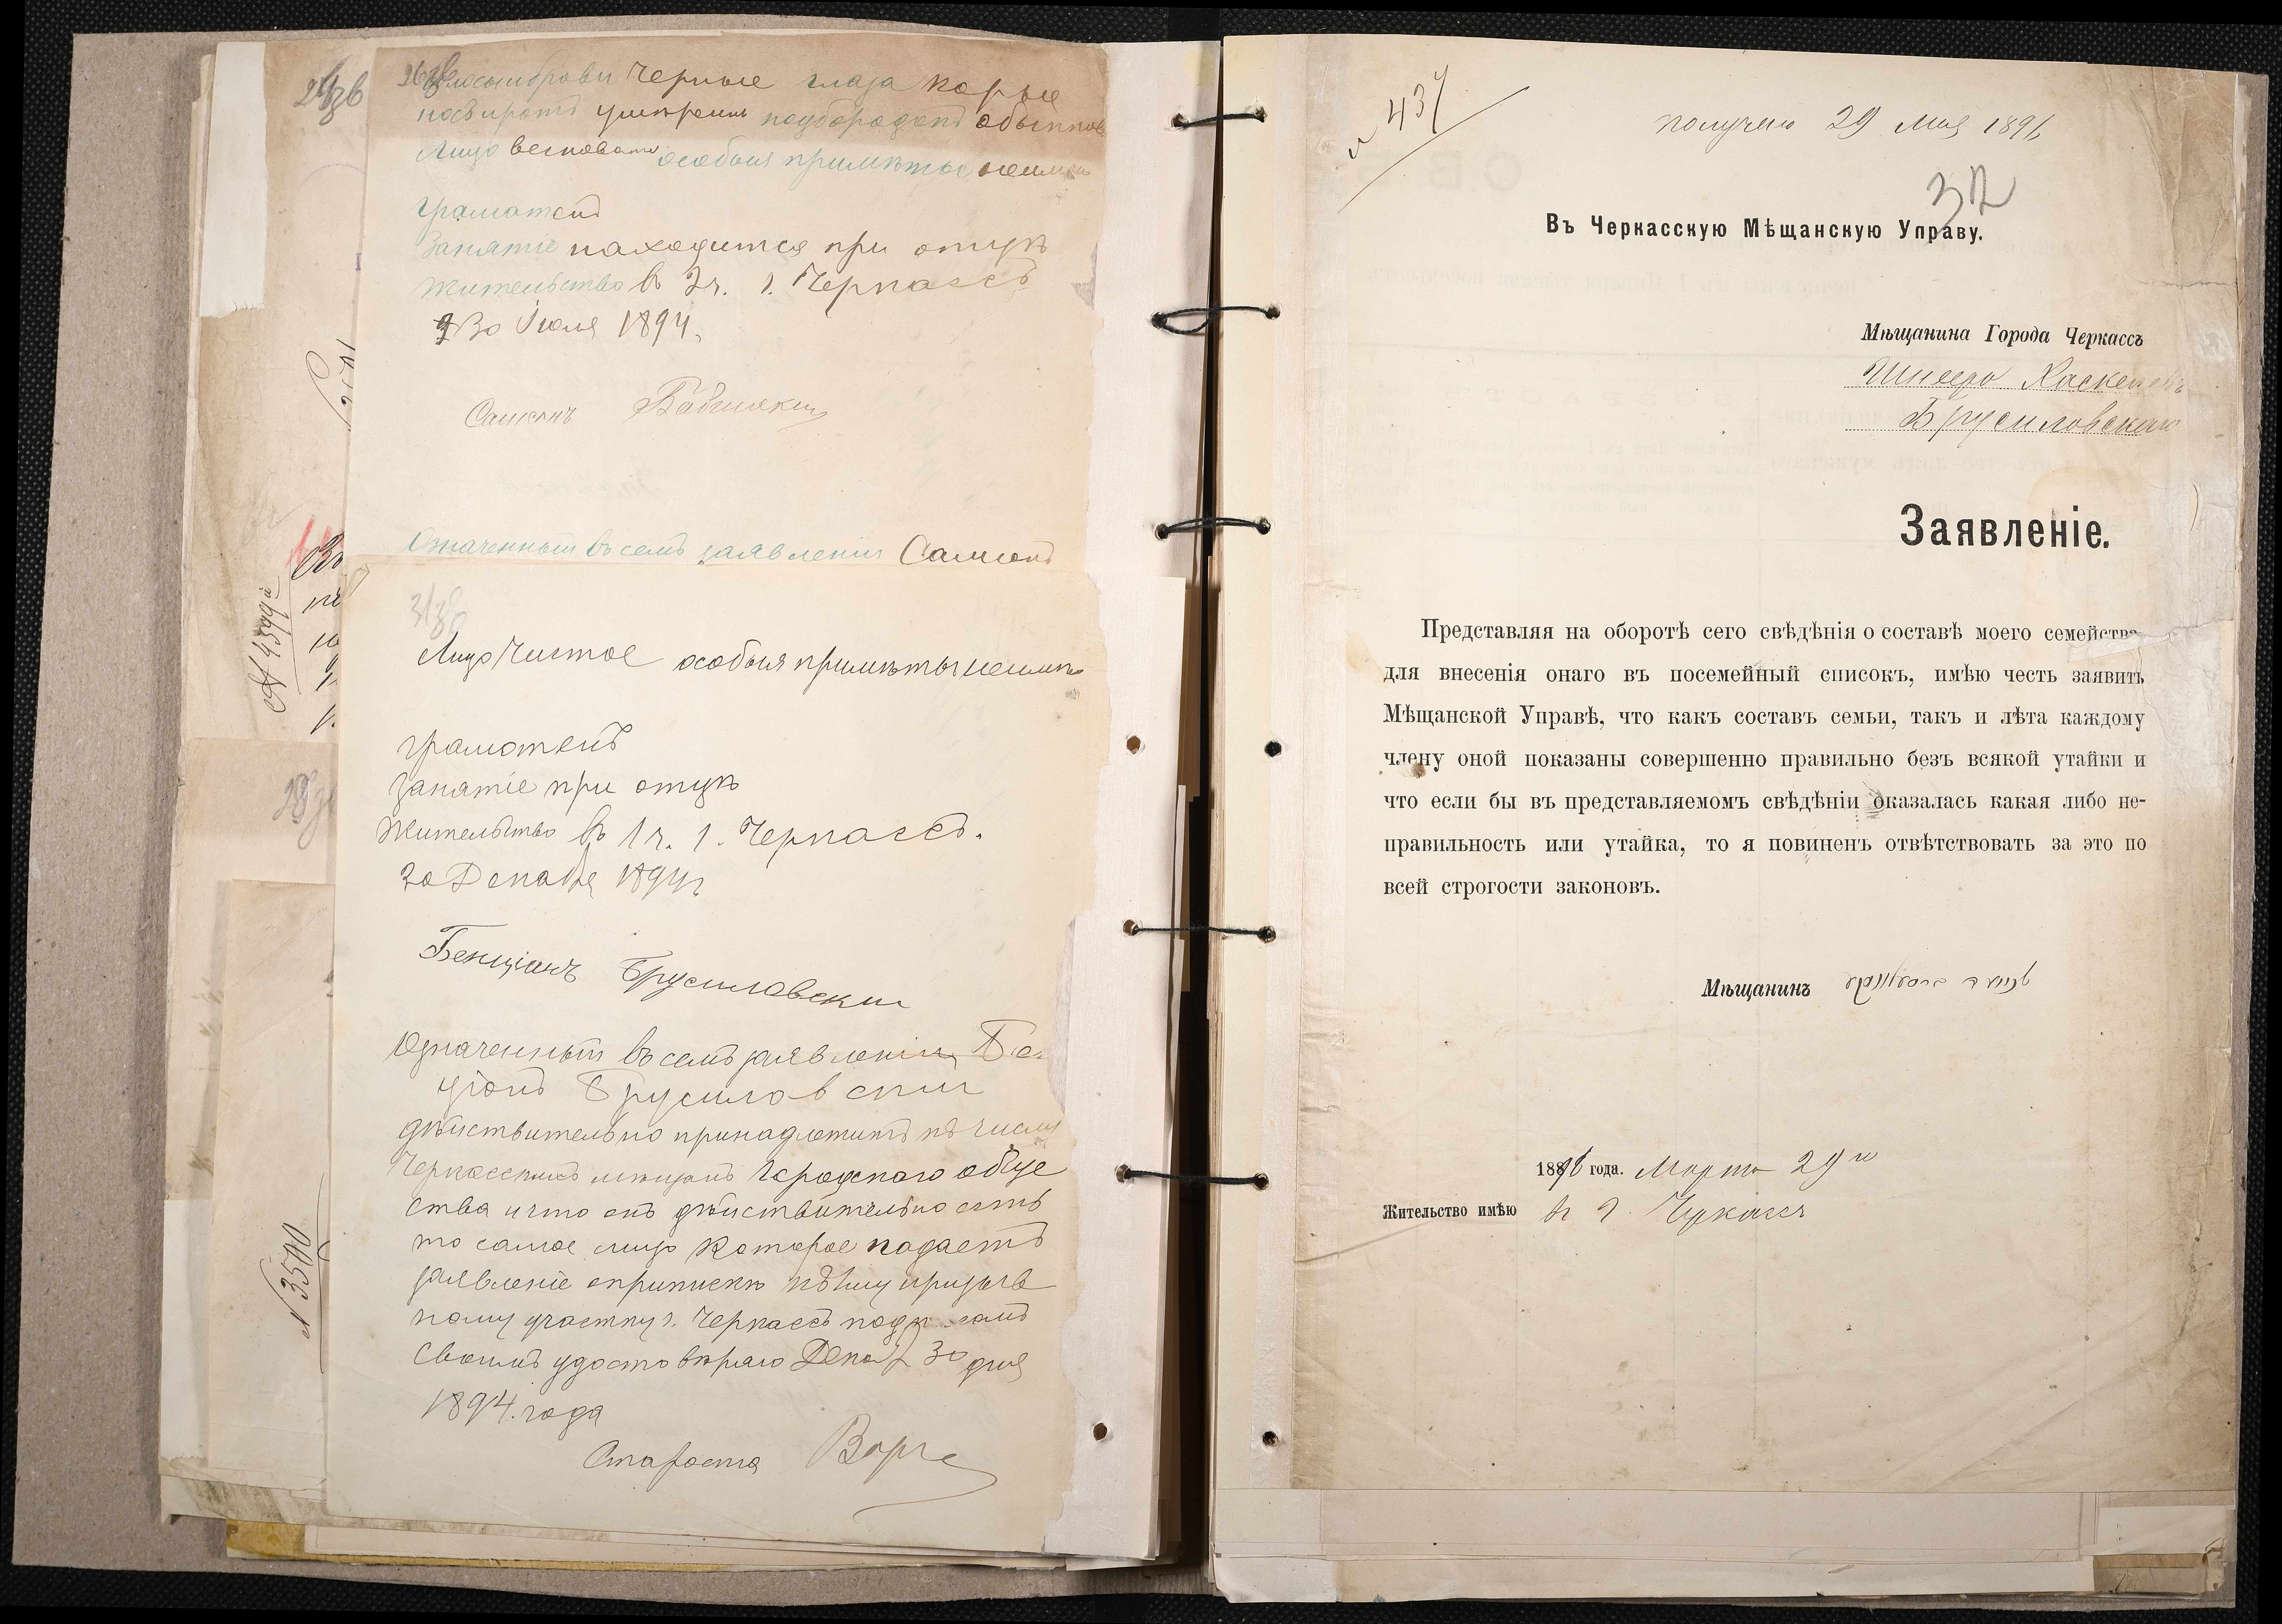 волосы и брови Черные глаза Карые
носъ и ротъ умѣрены подбородокъ обыкнов
Лицо весноватое особыя примѣты неимѣ
Грамотенъ
Занятіе находится при отцѣ
жительство въ 2 ч. г. Черкассъ
30 Іюля 1894.
Самсонъ
Означенный въ семъ заявленіи Самсонъ
31
Лицо Чистое особыя примѣты неимѣ
грамотенъ
Занятіе при отцѣ
Жительство въ 1 ч. г. Черкассъ.
30 Декабря 1894 г
Бенціанъ Брусиловскій
Означенный въ семъ заявленіи Бен
ціонъ Брусиловскій
дѣйствительно принадлежитъ къ числу
Черкасскихъ мѣщанъ городскаго обще
ства и что онъ дѣйствительно есть
то самое лицо которое подаетъ
заявленіе о припискѣ къ 1му призыв
ному участку г. Черкассъ подписомъ
своимъ удостовѣряю Декаб 30 дня
1894. года
Староста
№ 4599
№ 3500
№ 437
получено 29 Мая 1896
32
Въ Черкасскую Мѣщанскую Управу.
Мѣщанина Города Черкассъ
Шнеера Хаскелевъ
Брусиловскаго
Заявленіе.
Представляя на оборотѣ сего свѣдѣнія о составѣ моего семейства
для внесенія онаго въ посемейный списокъ, имѣю честь заявить
Мѣщанской Управѣ, что какъ составъ семьи, такъ и лѣта каждому
члену оной показаны совершенно правильно безъ всякой утайки и
что если бы въ представляемомъ свѣдѣніи оказалась какая либо не-
правильность или утайка, то я повиненъ отвѣтствовать за это по
всей строгости законовъ.
Мѣщанинъ
1896 года. Марта 29 го
Жительство имѣю въ г. Черкассы